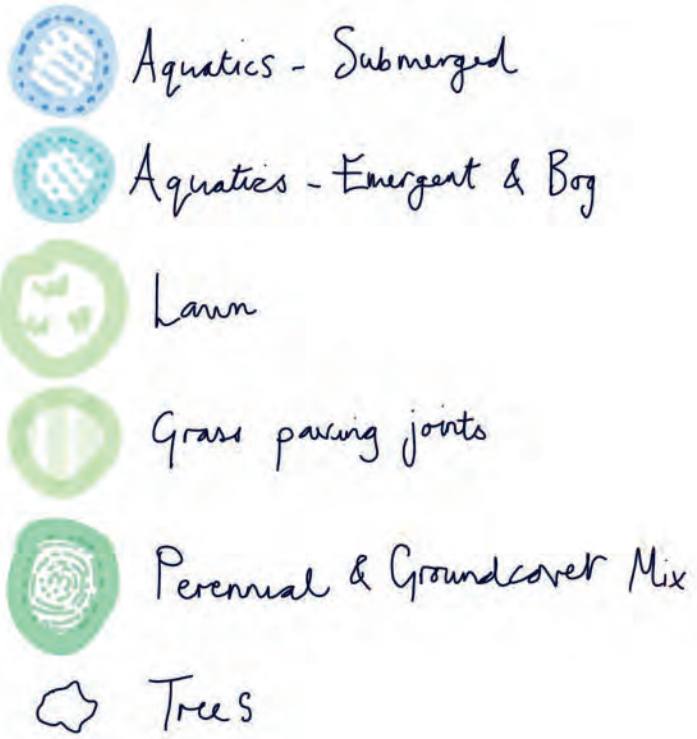 Aquatics - Submerged
Aquatics - Emergent & Bog
Lawn
Grass paving joints
Perennial & Groundcover Mix
Trees